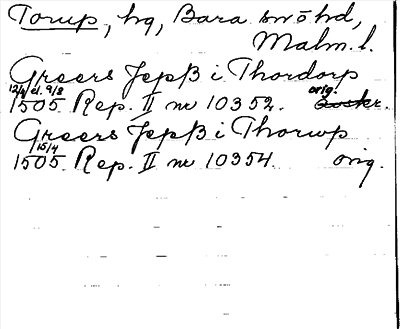 Torup, hg, Bara sn o hd,
Malm. l.
Greers Jepß i Thordorp
12/4 el. 9/8 orig.
1505 Rep. II nr 10352.
Greers Jepß i Thorup
15/4
1505 Rep. II nr 10354. orig.